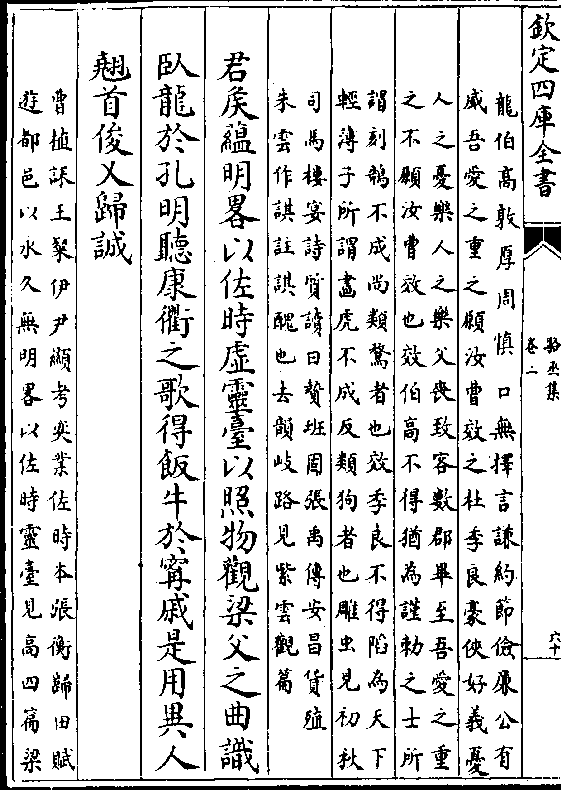 欽定四庫全書
駱丞集
卷二
六十
龍伯高敦厚周慎口無擇言謙約節儉廉公有
威吾愛之重之願汝曹效之杜季良豪俠好義憂
人之憂樂人之樂父喪致客數郡畢至吾愛之重
之不願汝曹效也效伯高不得猶為謹勅之士所
謂刻鵠不成尚類鶩者也效季良不得陷為天下
輕薄子所謂畫虎不成反類狗者也雕虫見初秋
司馬樓宴詩質讀曰贄班固張禹傳安昌貨殖
朱雲作諆註諆醜也去韻岐路見紫雲觀篇
君矦蘊明畧以佐時虛靈臺以照物觀梁父之曲識
臥龍於孔明聽康衢之歌得飯牛於寗戚是用異人
翹首俊乂歸誠
曹植誄王粲伊尹顯考奕業佐時本張衡歸田賦
遊都邑以永久無明畧以佐時靈臺見高四篇梁